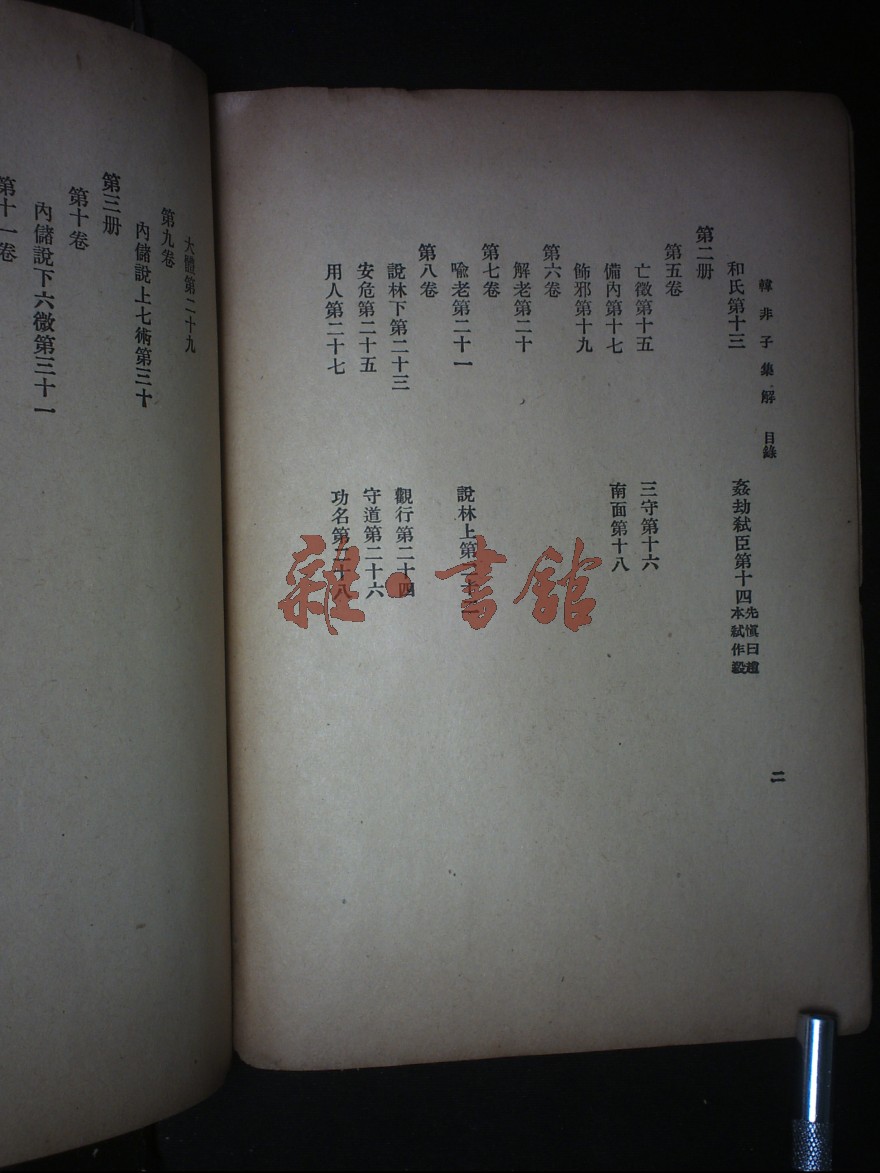 韓非子集解 目錄
和氏第十三 姦劫弒臣第十四 先愼曰趙本弒作殺
第二册
第五卷
亡徵第十五 三守第十六
備內第十七 南面第十八
飾邪第十九
第六卷
解老第二十
第七卷
喩老第二十一 說林上第二十二
第八卷
說林下第二十三 觀行第二十四
安危第二十五 守道第二十六
用人第二十七 功名第二十八
二
大體第二十九
第九卷
內儲說上七術第三十
第三册
第十卷
內儲說下六微第三十一
第十一卷
雜·書館